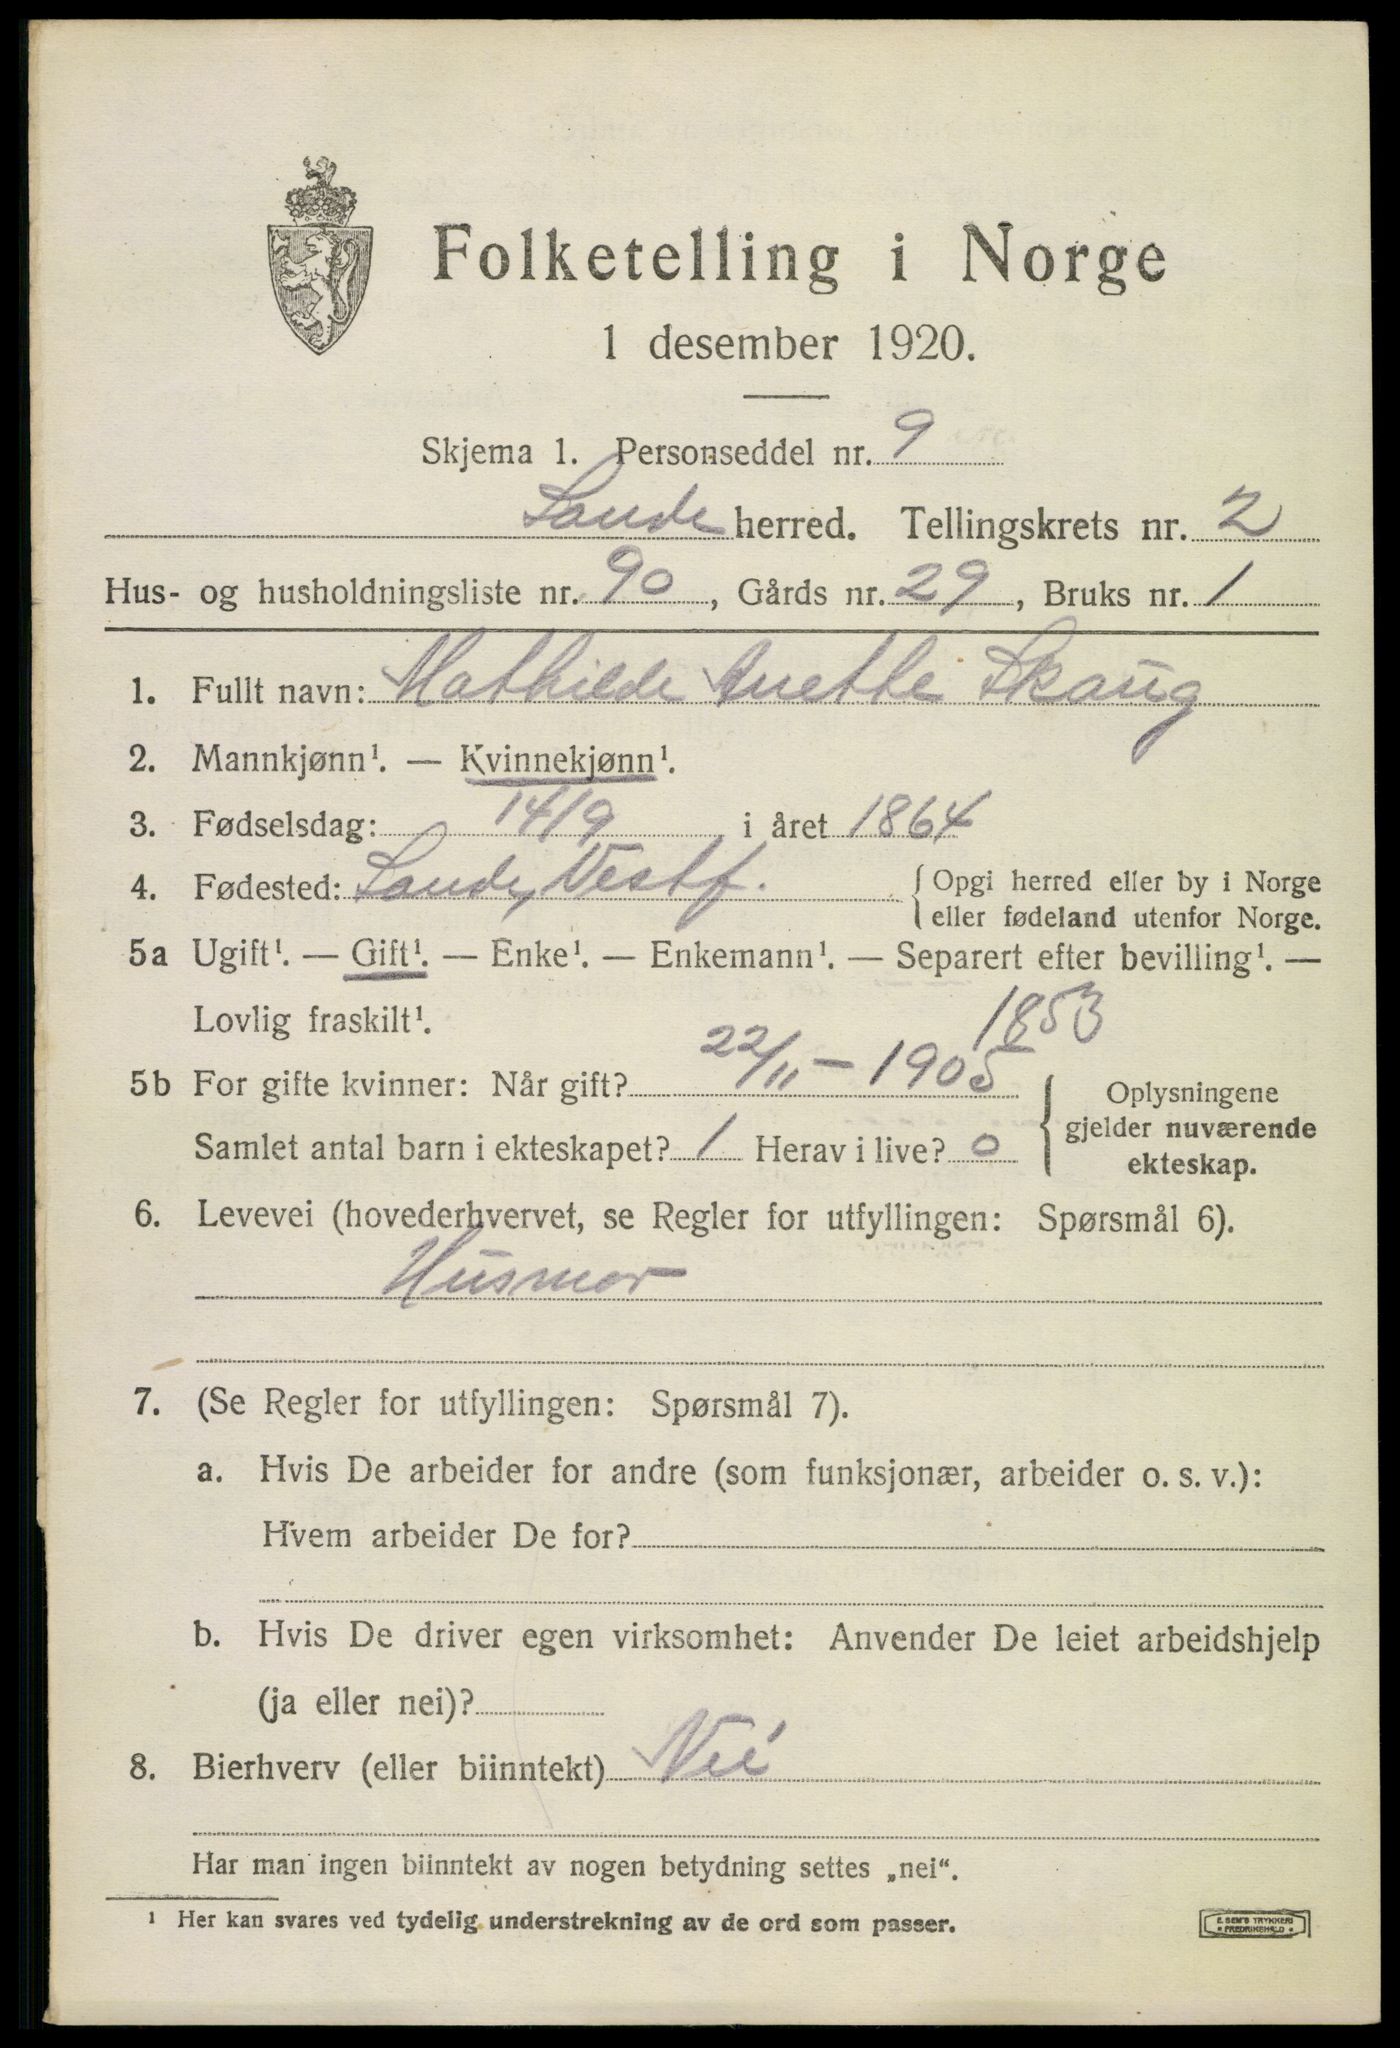 Folketelling i Norge
1 desember 1920.
Skjema 1. Personseddel nr. 9
Sande herred. Tellingskrets nr. 2
Hus- og husholdningsliste nr. 90, Gårds nr. 29, Bruks nr. 1
1. Fullt navn: Mathilde Anette Skaug
2. Mannkjønn¹. — Kvinnekjønn¹.
3. Fødselsdag: 14/9 i året 1864
4. Fødested: Sande, Vestf. { Opgi herred eller by i Norge
eller fødeland utenfor Norge.
5a Ugift¹. — Gift¹. — Enke¹. — Enkemann¹. — Separert efter bevilling¹. —
Lovlig fraskilt¹.
1853
5b For gifte kvinner: Når gift? 22/11 - 1905
Samlet antal barn i ekteskapet? 1 Herav i live? 0
{ Oplysningene
gjelder nuværende
ekteskap.
6. Levevei (hovederhvervet, se Regler for utfyllingen: Spørsmål 6).
Husmor
7. (Se Regler for utfyllingen: Spørsmål 7).
a. Hvis De arbeider for andre (som funksjonær, arbeider o. s. v.):
Hvem arbeider De for?
b. Hvis De driver egen virksomhet: Anvender De leiet arbeidshjelp
(ja eller nei)?
8. Bierhverv (eller biinntekt) Nei
Har man ingen biinntekt av nogen betydning settes „nei“.
¹ Her kan svares ved tydelig understrekning av de ord som passer.
E. SEM'S TRYKKERI
FREDRIKSHALD